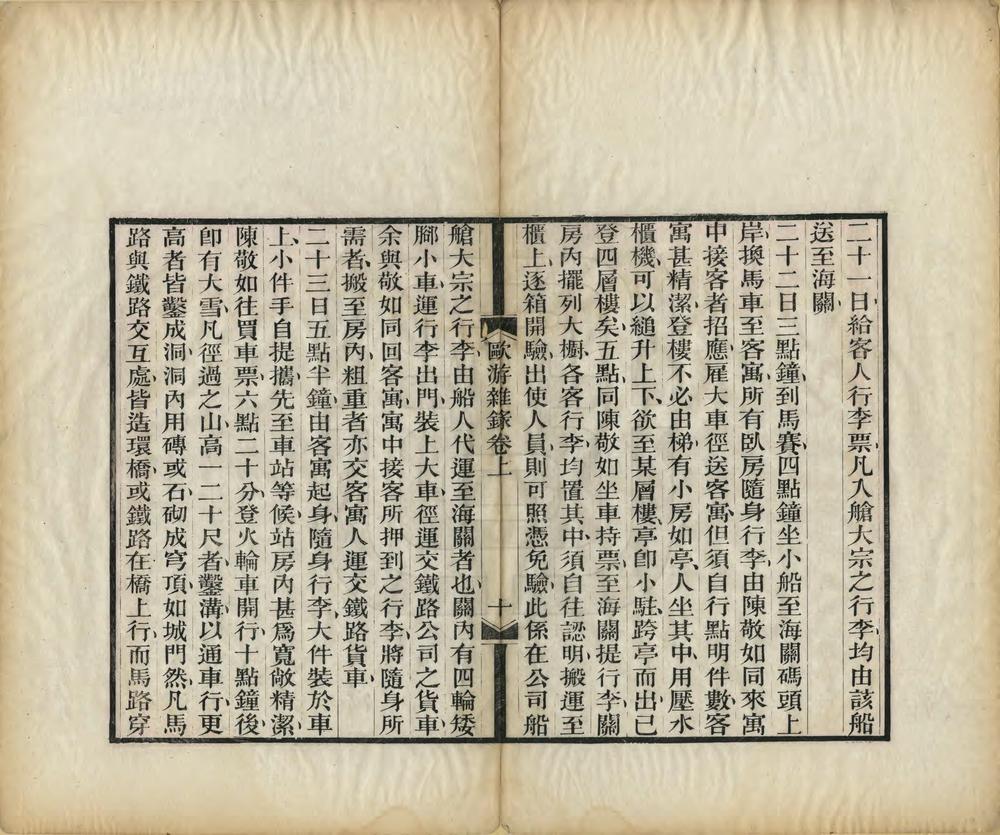 二十一日給客人行李票凡入艙大宗之行李均由該船
送至海關
二十二日三點鐘到馬賽四點鐘坐小船至海關碼頭上
岸換馬車至客寓所有臥房隨身行李由陳敬如同來寓
中接客者招應雇大車徑送客寓但須自行點明件數客
寓甚精潔登樓不必由梯有小房如亭人坐其中用壓水
櫃機可以縋升上下欲至某層樓亭卽小駐跨亭而出已
登四層樓矣五點同陳敬如坐車持票至海關提行李關
房內擺列大櫥各客行李均置其中須自往認明搬運至
櫃上逐箱開驗出使人員則可照憑免驗此係在公司船
歐游雜錄卷上
十
艙大宗之行李由船人代運至海關者也關內有四輪矮
腳小車運行李出門裝上大車徑運交鐵路公司之貨車
余與敬如同回客寓寓中接客所押到之行李將隨身所
需者搬至房內粗重者亦交客寓人運交鐵路貨車
二十三日五點半鐘由客寓起身隨身行李大件裝於車
上小件手自提攜先至車站等候站房內甚爲寬敞精潔
陳敬如往買車票六點二十分登火輪車開行十點鐘後
卽有大雪凡徑過之山高一二十尺者鑿溝以通車行更
高者皆鑿成洞洞內用磚或石砌成穹頂如城門然凡馬
路與鐵路交互處皆造環橋或鐵路在橋上行而馬路穿